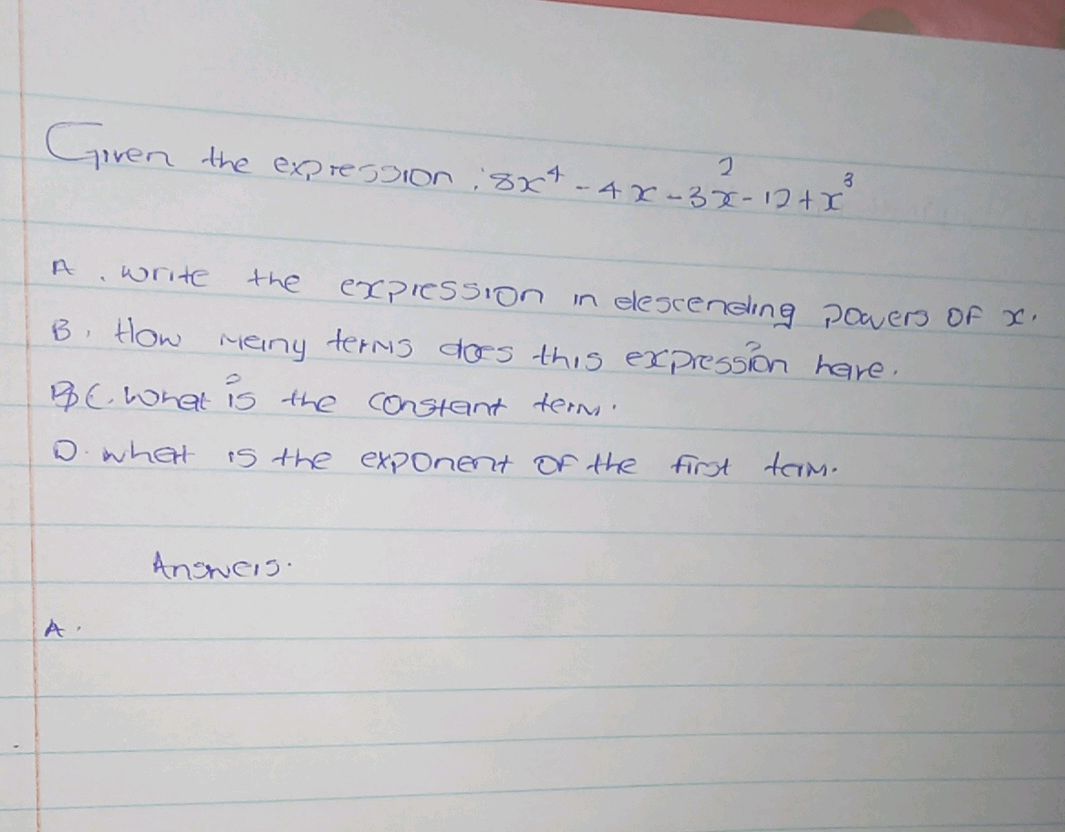 Given the expression : 8x⁴ - 4x - 3x² - 12 + x³
A. write the expression in descending powers of x.
B. How many terms does this expression have.
C. What is the constant term.
D. what is the exponent of the first term.
Answers.
A.